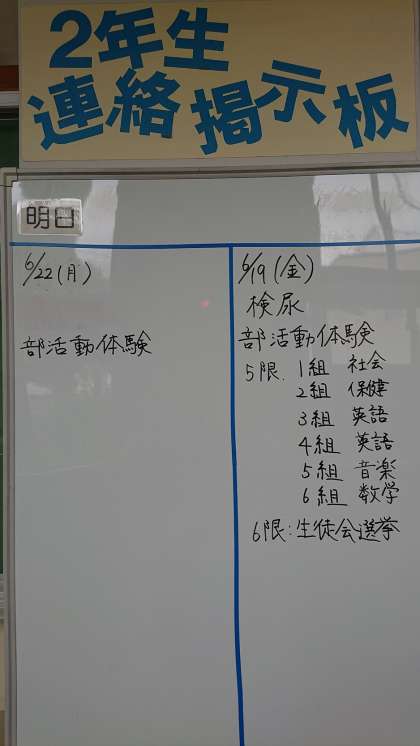 2年生
連絡掲示板
明日
6/22(月)
部活動体験
6/19(金)
検尿
部活動体験
5限. 1組 社会
2組 保健
3組 英語
4組 英語
5組 音楽
6組 数学
6限:生徒会選挙